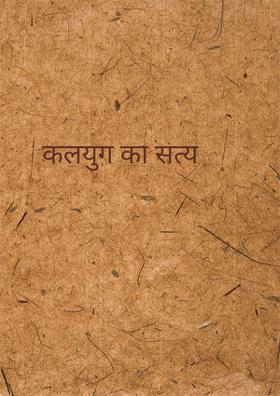 कलयुग का सत्य